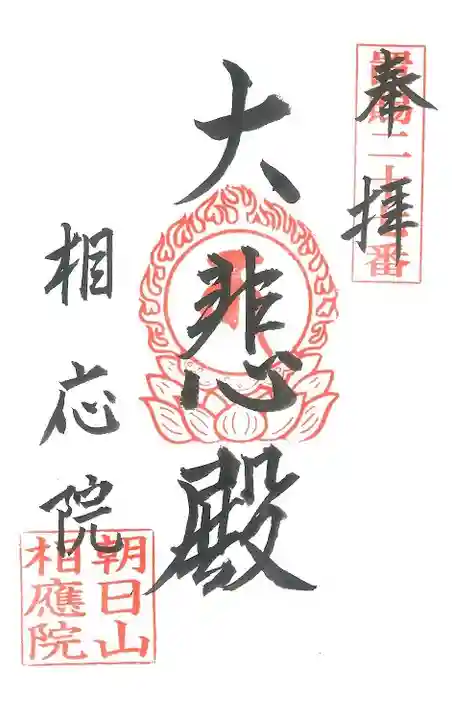 奉拝
置賜二十七番
大悲殿
相応院
朝日山
相應院